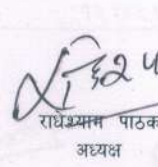 राधेश्याम पाठक
अध्यक्ष